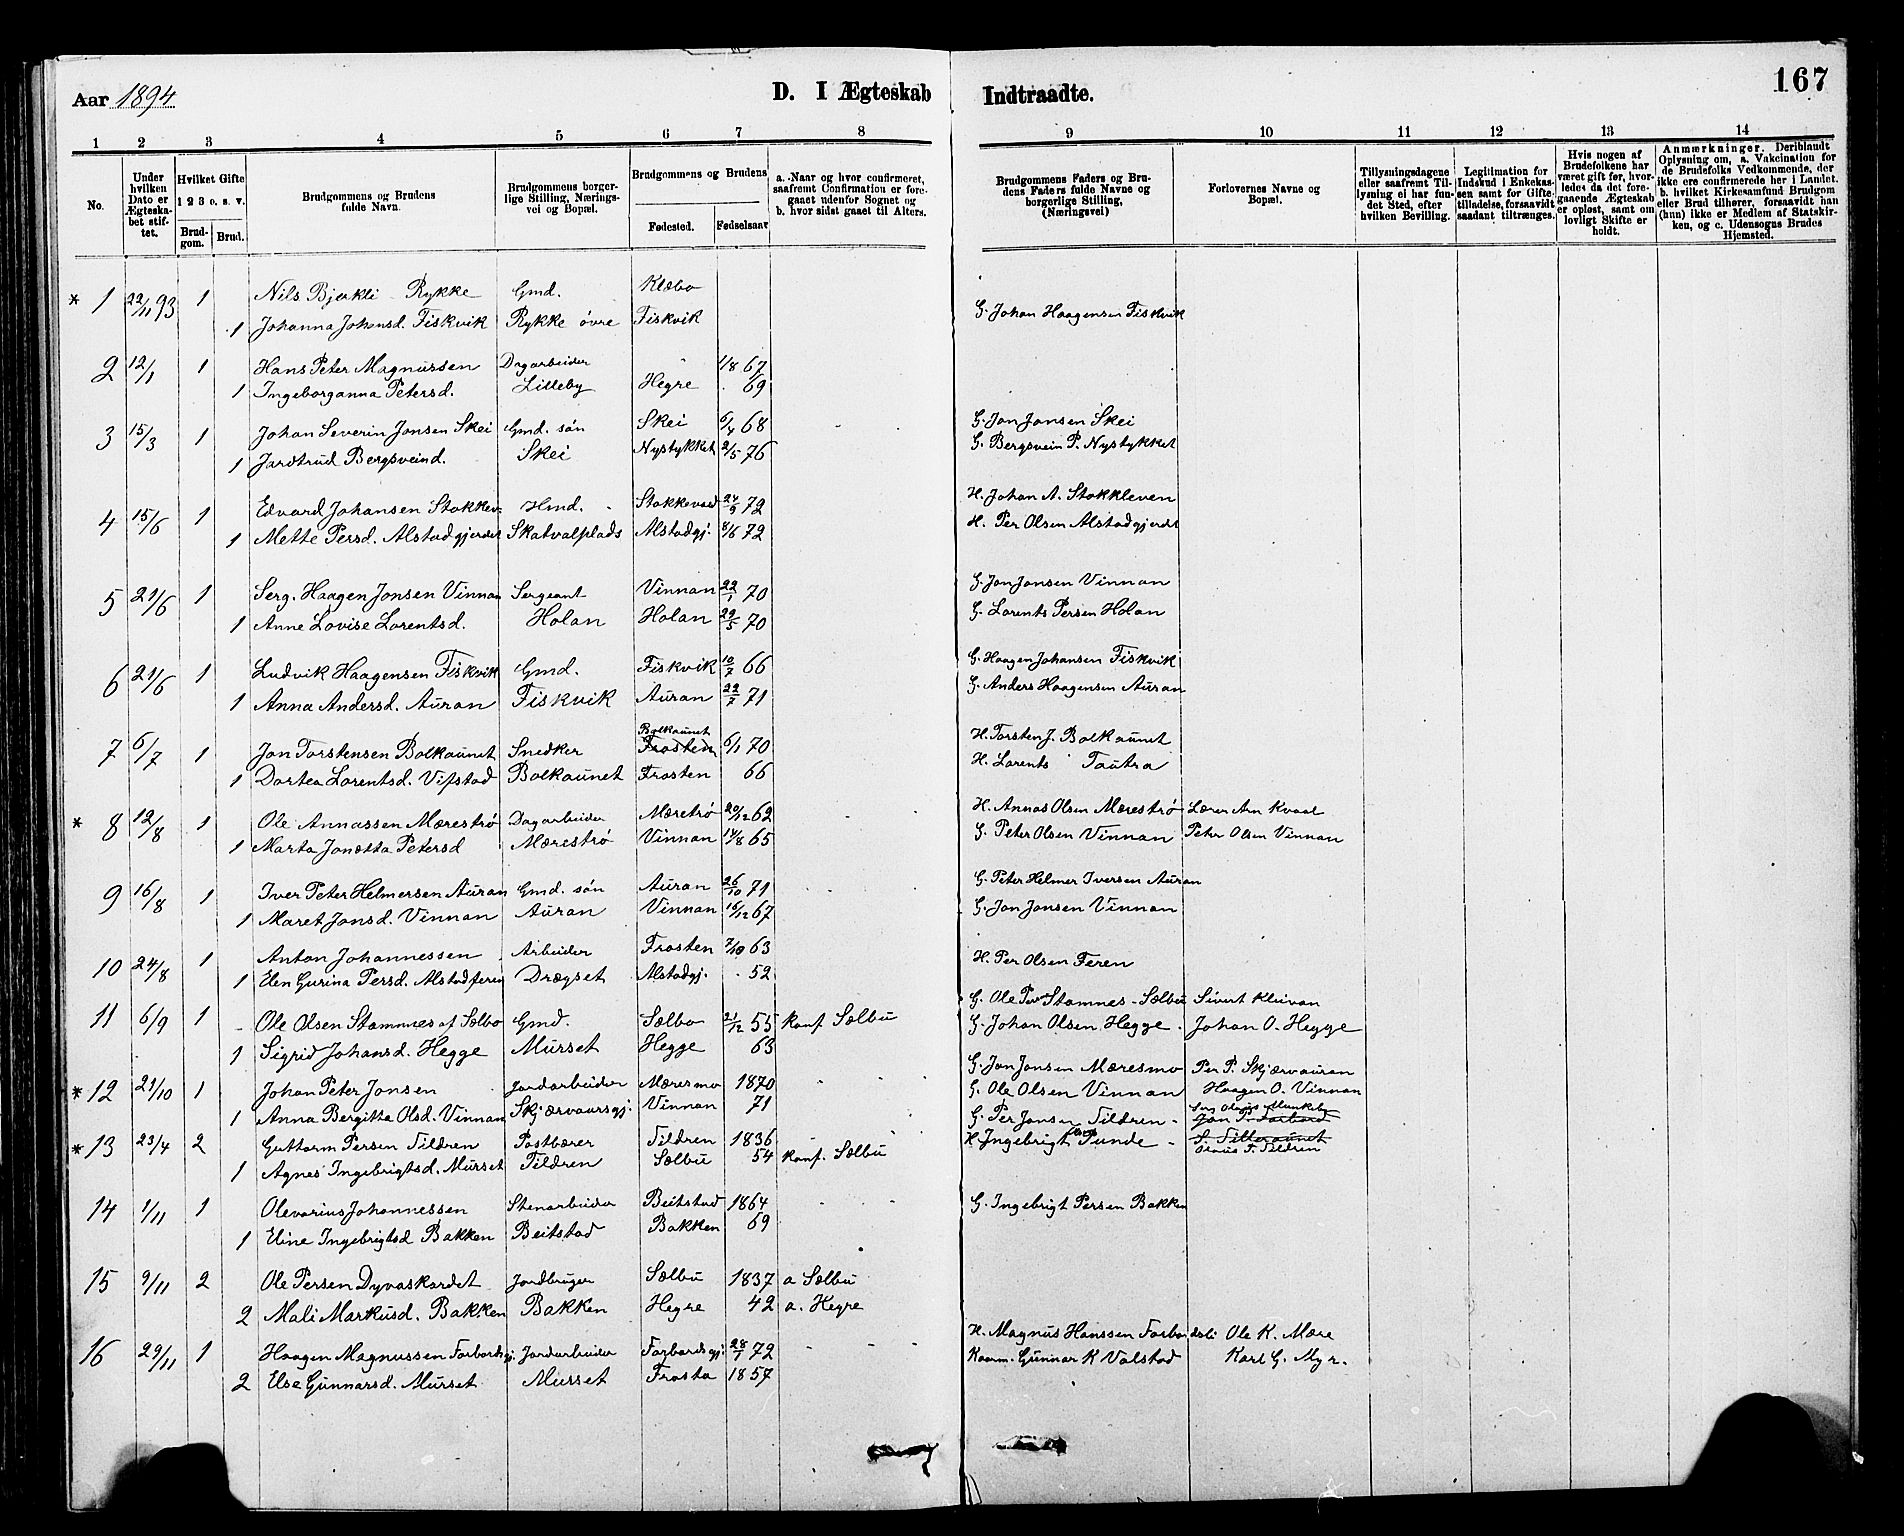 Aar 1894
D. I Ægteskab Indtraadte.
167
1 2 3 4 5 6 7 8 9 10 11 12 13 14
No.
Under hvilken Dato er Ægteskabet stiftet.
Hvilket Gifte 1 2 3 o. s. v.
Brudgom. Brud.
Brudgommens og Brudens fulde Navn.
Brudgommens borgerlige Stilling, Næringsvei og Bopæl.
Brudgommens og Brudens
Fødested. Fødselsaar
a. Naar og hvor confirmeret, saafremt Confirmation er foregaaet udenfor Sognet og b. hvor sidst gaaet til Alters.
Brudgommens Faders og Brudens Faders fulde Navne og borgerlige Stilling, (Næringsvei)
Forlovernes Navne og Bopæl.
Tillysningsdagene eller saafremt Tillysning ei har fundet Sted, efter hvilken Bevilling.
Legitimation for Indskud i Enkekassen samt for Giftetilladelse, forsaavidt saadant tiltrænges.
Hvis nogen af Brudefolkene har været gift før, hvorledes da det foregaaende Ægteskab er opløst, samt om lovligt Skifte er holdt.
Anmærkninger. Deriblandt Oplysning om, a. Vakcination for de Brudefolks Vedkommende, der ikke ere confirmerede her i Landet. b. hvilket Kirkesamfund Brudgom eller Brud tilhører, forsaavidt han (hun) ikke er Medlem af Statskirken, og c. Udensogns Brudes Hjemsted.
* 1 22/11 93 1 Nils Bjerkli Rykke Gmd. Klæbo
1 Johanna Johansd. Fiskvik Rykke øvre Fiskvik G. Johan Haagensen Fiskvik
2 12/1 1 Hans Peter Magnussen Dagarbeider " 1/8 67
1 Ingeborganna Petersd. Lilleby Hegre . 69
3 15/3 1 Johan Severin Jonsen Skei Gmd. søn Skei 6/4 68 G. Jon Jonsen Skei
1 Jardtrud Bergsveind. Skei Nystykket 2/5 76 G. Bergsvein P. Nystykket
4 15/6 1 Edvard Johansen Stokkev. Hmd. Stokkevad 24/9 72 H. Johan A. Stokkleven
1 Mette Persd. Alstadgjerdet Skatvalplads Alstadgj. 8/6 72 H. Per Olsen Alstadgjerdet
5 21/6 1 Serg. Haagen Jonsen Vinnan Sergeant Vinnan 22/1 70 G. Jon Jonsen Vinnan
1 Anne Lovise Lorentsd. Holan Holan 29/5 70 G. Lorents Persen Holan
6 21/6 1 Ludvik Haagensen Fiskvik Gmd. Fiskvik 10/7 66 G. Haagen Johansen Fiskvik
1 Anna Andersd. Auran Fiskvik Auran 22/7 71 G. Anders Haagensen Auran
7 6/7 1 Jon Torstensen Bolkaunet Snedker Bolkaunet Frosten 6/1 70 H. Torsten J. Bolkaunet
1 Dortea Lorentsd. Vifstad Bolkaunet Frosten 66 H. Lorents Tautra
* 8 12/8 1 Ole Annassen Mærestrø Dagarbeider Mæretrø 20/12 62 H. Annas Olsen Mærestrø Lærer Arn Kvaal
1 Marta Jonetta Petersd Mærestrø Vinnan 14/8 65 G. Peter Olsen Vinnan Peter Olsen Vinnan
9 16/8 1 Iver Peter Helmersen Auran Gmd. søn Auran 26/10 71 G. Peter Helmer Iversen Auran
1 Maret Jonsd. Vinnan Auran Vinnan 16/12 67 G. Jon Jonsen Vinnan
10 24/8 1 Anton Johannessen Arbeider Frosten 7/10 63 H. Per Olsen Feren
1 Elen Gurina Persd. Alstadferen Drægset Alstadgj. . 52
11 6/9 1 Ole Olsen Stamnes af Sælbo Gmd. Sælbo 21/12 55 konf. Sælbu G. Ole Per Stamnes - Sælbu Sivert Kleivan
1 Sigrid Johansd. Hegge Murset Hegge 63 G. Johan Olsen Hegge Johan O. Hegge
* 12 21/10 1 Johan Peter Jonsen Jordarbeider Mæresmo 1870 G. Jon Jonsen Mæresmo Per P. Skjærvauran
1 Anna Bergitta Olsd. Vinnan Skjærvaursgj. Vinnan 71 G. Ole Olsen Vinnan Haagen O. Vinnan
* 13 23/4 2 Guttorm Persen Tildren Postbærer Tildren 1836 G. Per Jonsen Tildren
1 Agnes Ingebrigtsd. Murset Tildren Sælbu 54 konf. Sælbu H. Ingebrigt Punde
14 1/11 1 Olevarius Johannessen Stenarbeider Beitstad 1864 G. Ingebrigt Persen Bakken
1 Eline Ingebrigtsd Bakken Beitstad Bakken 69
15 9/11 2 Ole Persen Dyvaskardet Jordbruger Sælbu 1837 a Sælbu
2 Mali Markusd. Bakken Bakken Hegre 42 a. Hegre
16 29/11 1 Haagen Magnussen Forbordsgj. Jordarbeider Forbordsgj. 28/1 72 H. Magnus Hanssen Forbordsli Ole K. Mære
2 Else Gunnarsd. Murset Murset Frosta 1857 Kaarm. Gunnar K Valstad Karl G. Myr.